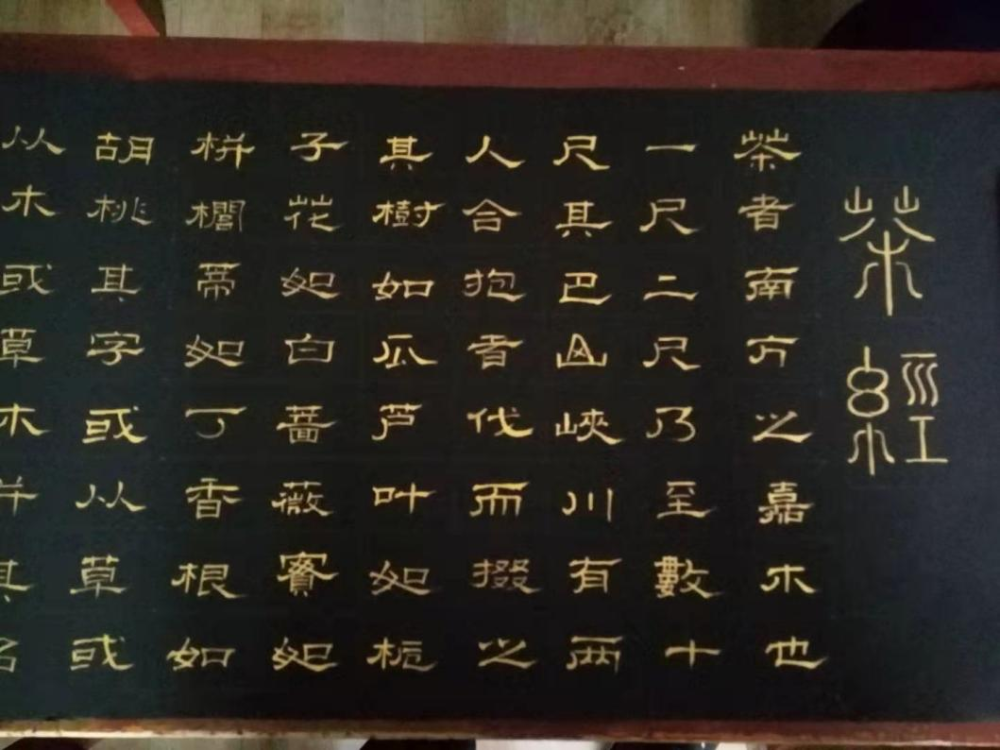 茶經
茶者南方之嘉木也
一尺二尺乃至數十
尺其巴山峽川有兩
人合抱者伐而掇之
其樹如瓜芦叶如栀
子花如白薔薇實如
栟櫚蒂如丁香根如
胡桃其字或从草或
从木或草木并其名